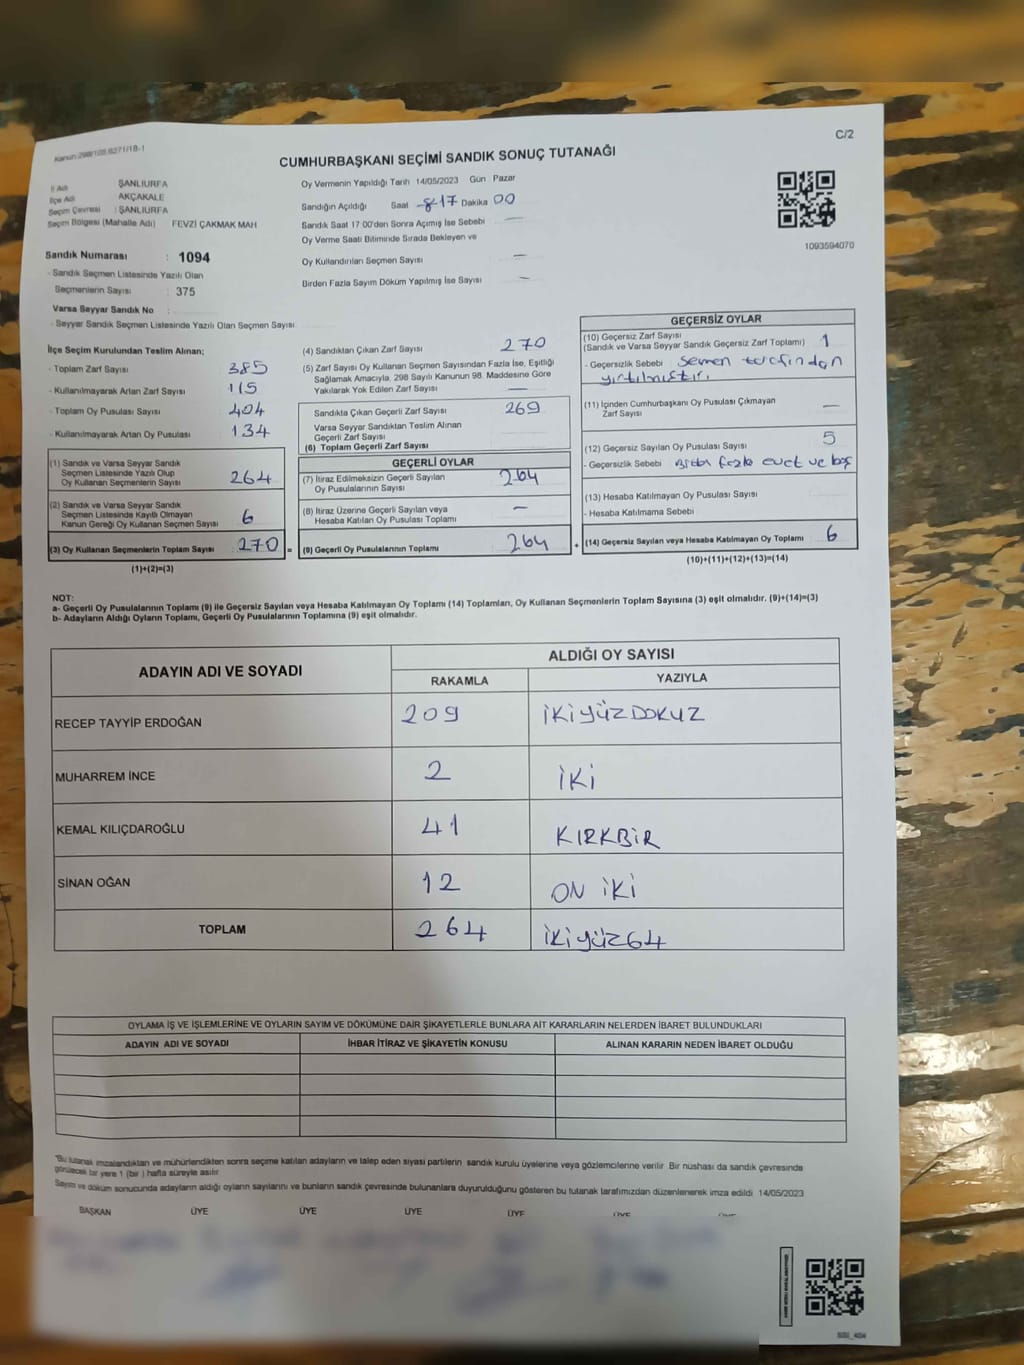 C/2
Kanun 298/105.6271/18-1
CUMHURBAŞKANI SEÇİMİ SANDIK SONUÇ TUTANAĞI
İl Adı ŞANLIURFA
İlçe Adı AKÇAKALE
Seçim Çevresi : ŞANLIURFA
Seçim Bölgesi (Mahalle Adı) FEVZİ ÇAKMAK MAH
Sandık Numarası : 1094
- Sandık Seçmen Listesinde Yazılı Olan
Seçmenlerin Sayısı : 375
Varsa Seyyar Sandık No :
- Seyyar Sandık Seçmen Listesinde Yazılı Olan Seçmen Sayısı
Oy Vermenin Yapıldığı Tarih 14/05/2023 Gün Pazar
Sandığın Açıldığı Saat 17 Dakika 00
Sandık Saat 17 00'den Sonra Açımış İse Sebebi —
Oy Verme Saati Bitiminde Sırada Bekleyen ve
Oy Kullandırılan Seçmen Sayısı —
Birden Fazla Sayım Döküm Yapılmış İse Sayısı —
1093594070
İlçe Seçim Kurulundan Teslim Alınan;
- Toplam Zarf Sayısı 385
- Kullanılmayarak Artan Zarf Sayısı 115
- Toplam Oy Pusulası Sayısı 404
- Kullanılmayarak Artan Oy Pusulası 134
(1) Sandık ve Varsa Seyyar Sandık
Seçmen Listesinde Yazılı Olup
Oy Kullanan Seçmenlerin Sayısı 264
(2) Sandık ve Varsa Seyyar Sandık
Seçmen Listesinde Kayıtlı Olmayan
Kanun Gereği Oy Kullanan Seçmen Sayısı 6
(3) Oy Kullanan Seçmenlerin Toplam Sayısı 270 =
(1)+(2)=(3)
(4) Sandıktan Çıkan Zarf Sayısı 270
(5) Zarf Sayısı Oy Kullanan Seçmen Sayısından Fazla İse, Eşitliği
Sağlamak Amacıyla, 298 Sayılı Kanunun 98. Maddesine Göre
Yakılarak Yok Edilen Zarf Sayısı —
Sandıkta Çıkan Geçerli Zarf Sayısı 269
Varsa Seyyar Sandıktan Teslim Alınan
Geçerli Zarf Sayısı
(6) Toplam Geçerli Zarf Sayısı
GEÇERLİ OYLAR
(7) İtiraz Edilmeksizin Geçerli Sayılan
Oy Pusulalarının Sayısı 264
(8) İtiraz Üzerine Geçerli Sayılan veya
Hesaba Katılan Oy Pusulası Toplamı —
(9) Geçerli Oy Pusulalarının Toplamı 264 +
GEÇERSİZ OYLAR
(10) Geçersiz Zarf Sayısı
(Sandık ve Varsa Seyyar Sandık Geçersiz Zarf Toplamı) 1
- Geçersizlik Sebebi Semen
yırtılmıştır.
(11) İçinden Cumhurbaşkanı Oy Pusulası Çıkmayan
Zarf Sayısı —
(12) Geçersiz Sayılan Oy Pusulası Sayısı 5
- Geçersizlik Sebebi fazla evet ve boş
(13) Hesaba Katılmayan Oy Pusulası Sayısı
- Hesaba Katılmama Sebebi
(14) Geçersiz Sayılan veya Hesaba Katılmayan Oy Toplamı 6
(10)+(11)+(12)+(13)=(14)
NOT:
a- Geçerli Oy Pusulalarının Toplamı (9) ile Geçersiz Sayılan veya Hesaba Katılmayan Oy Toplamı (14) Toplamları, Oy Kullanan Seçmenlerin Toplam Sayısına (3) eşit olmalıdır. (9)+(14)=(3)
b- Adayların Aldığı Oyların Toplamı, Geçerli Oy Pusulalarının Toplamına (9) eşit olmalıdır.
ADAYIN ADI VE SOYADI ALDIĞI OY SAYISI
RAKAMLA YAZIYLA
RECEP TAYYİP ERDOĞAN 209 İKİYÜZDOKUZ
MUHARREM İNCE 2 İKİ
KEMAL KILIÇDAROĞLU 41 KIRKBİR
SİNAN OĞAN 12 ON İKİ
TOPLAM 264 İKİYÜZ64
OYLAMA İŞ VE İŞLEMLERİNE VE OYLARIN SAYIM VE DÖKÜMÜNE DAİR ŞİKAYETLERLE BUNLARA AİT KARARLARIN NELERDEN İBARET BULUNDUKLARI
ADAYIN ADI VE SOYADI İHBAR İTİRAZ VE ŞİKAYETİN KONUSU ALINAN KARARIN NEDEN İBARET OLDUĞU
"Bu tutanak imzalandıktan ve mühürlendikten sonra seçime katılan adayların ve talep eden siyasi partilerin sandık kurulu üyelerine veya gözlemcilerine verilir. Bir nüshası da sandık çevresinde
görülecek bir yere 1 (bir ) hafta süreyle asılır.
Sayım ve döküm sonucunda adayların aldığı oyların sayılarını ve bunların sandık çevresinde bulunanlara duyurulduğunu gösteren bu tutanak tarafımızdan düzenlenerek imza edildi 14/05/2023
BAŞKAN ÜYE ÜYE ÜYE ÜYE ÜYE ÜYE